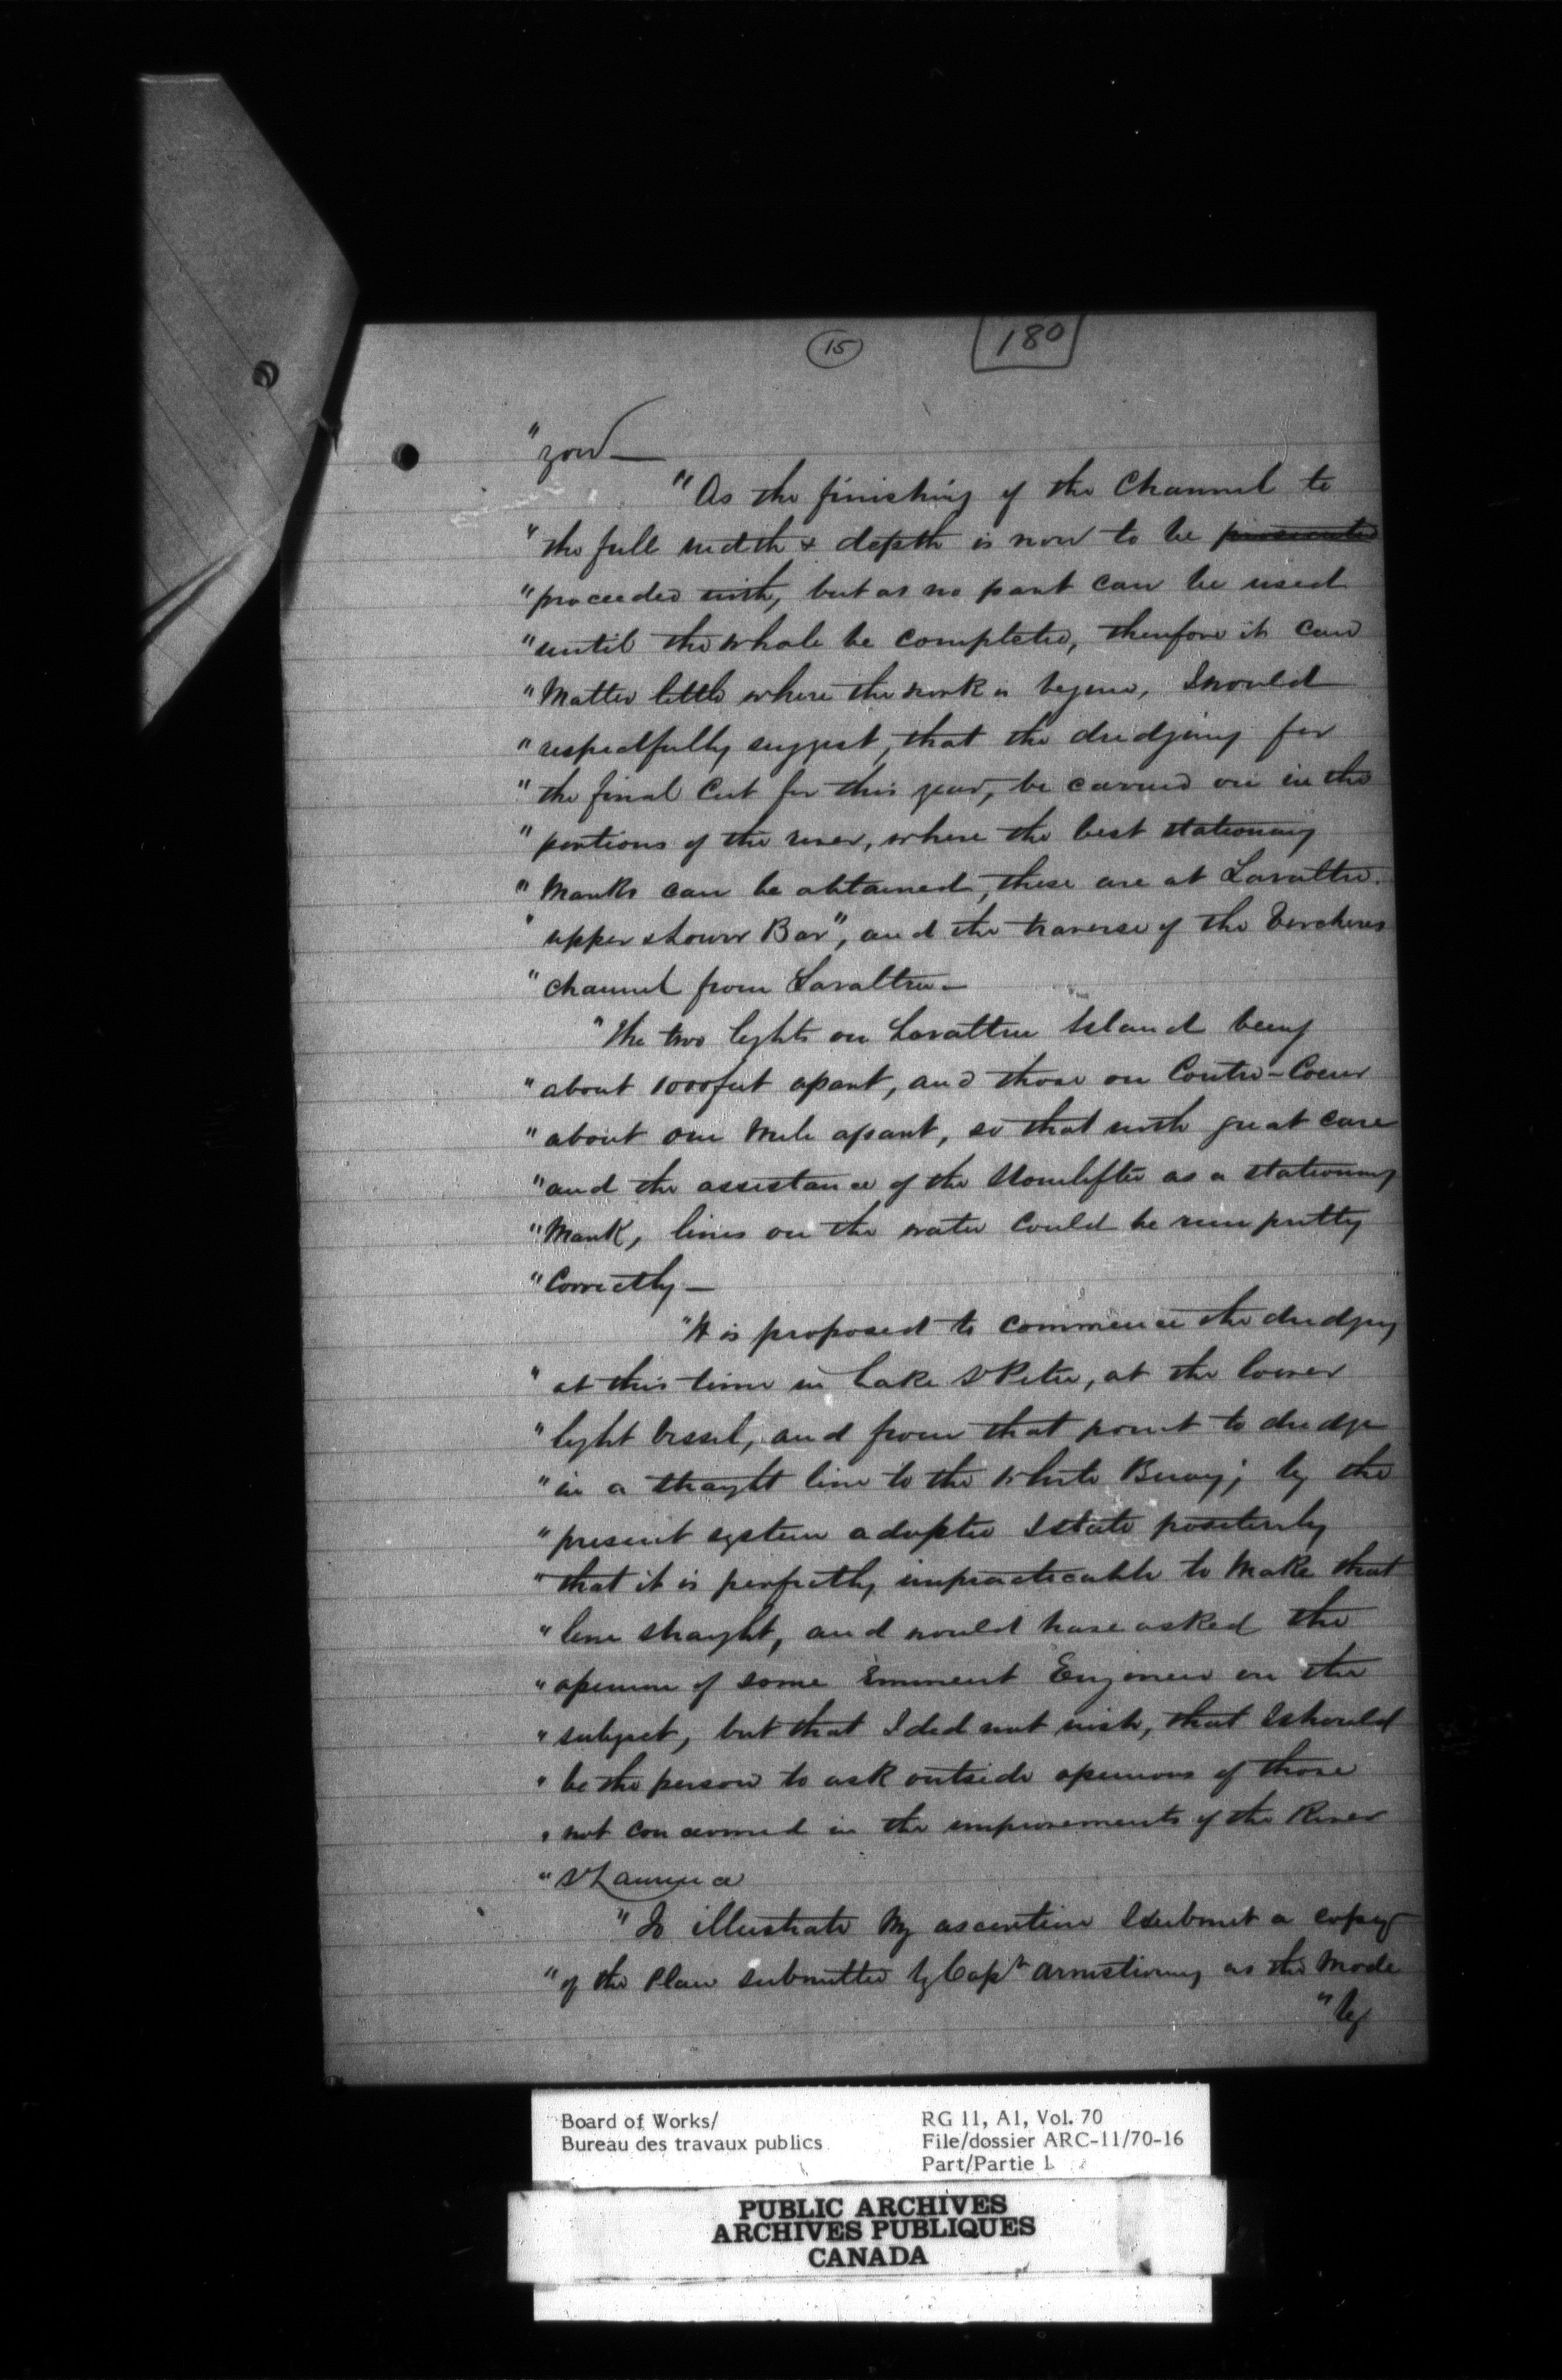 15
180
"zon —
"As the finishing of the Channel to
"the full width & depth is now to be prosecuted
"proceeded with, but as no part can be used
"until the whole be completed, therefore it can
"Matter little where the work is begun, I would
"respectfully suggest, that the dredging for
"the final Cut for this year, be carried on in the
"portions of the river, where the best stationary
"Marks can be obtained, these are at Lavaltrie
"upper & lower Bar", and the traverse of the Vercheres
"channel from Lavaltrie —
"The two lights on Lavaltrie Island being
"about 1000 feet apart, and those on Contre-Coeur
"about one Mile apart, so that with great care
"and the assistance of the Stonelifter as a stationary
"Mark, lines on the water could be run pretty
"Correctly —
"It is proposed to commence the dredging
"at this time in Lake St Peter, at the lower
"light Vessel, and from that point to dredge
"in a straght line to the White Buoy; by the
"present system adopted I state positively
"that it is perfectly impracticable to Make that
"line straght, and would have asked the
"opinion of some Eminent Engineer on the
"subject, but that I did not wish, that I should
"be the person to ask outside opinions of those
"not concerned in the improvements of the River
"St Lawrence
"To illustrate My assertion I submit a copy
"of the Plan submitted by Capt Armstrong as the Mode
"by
Board of Works/
Bureau des travaux publics
RG 11, A1, Vol. 70
File/dossier ARC-11/70-16
Part/Partie 1
PUBLIC ARCHIVES
ARCHIVES PUBLIQUES
CANADA